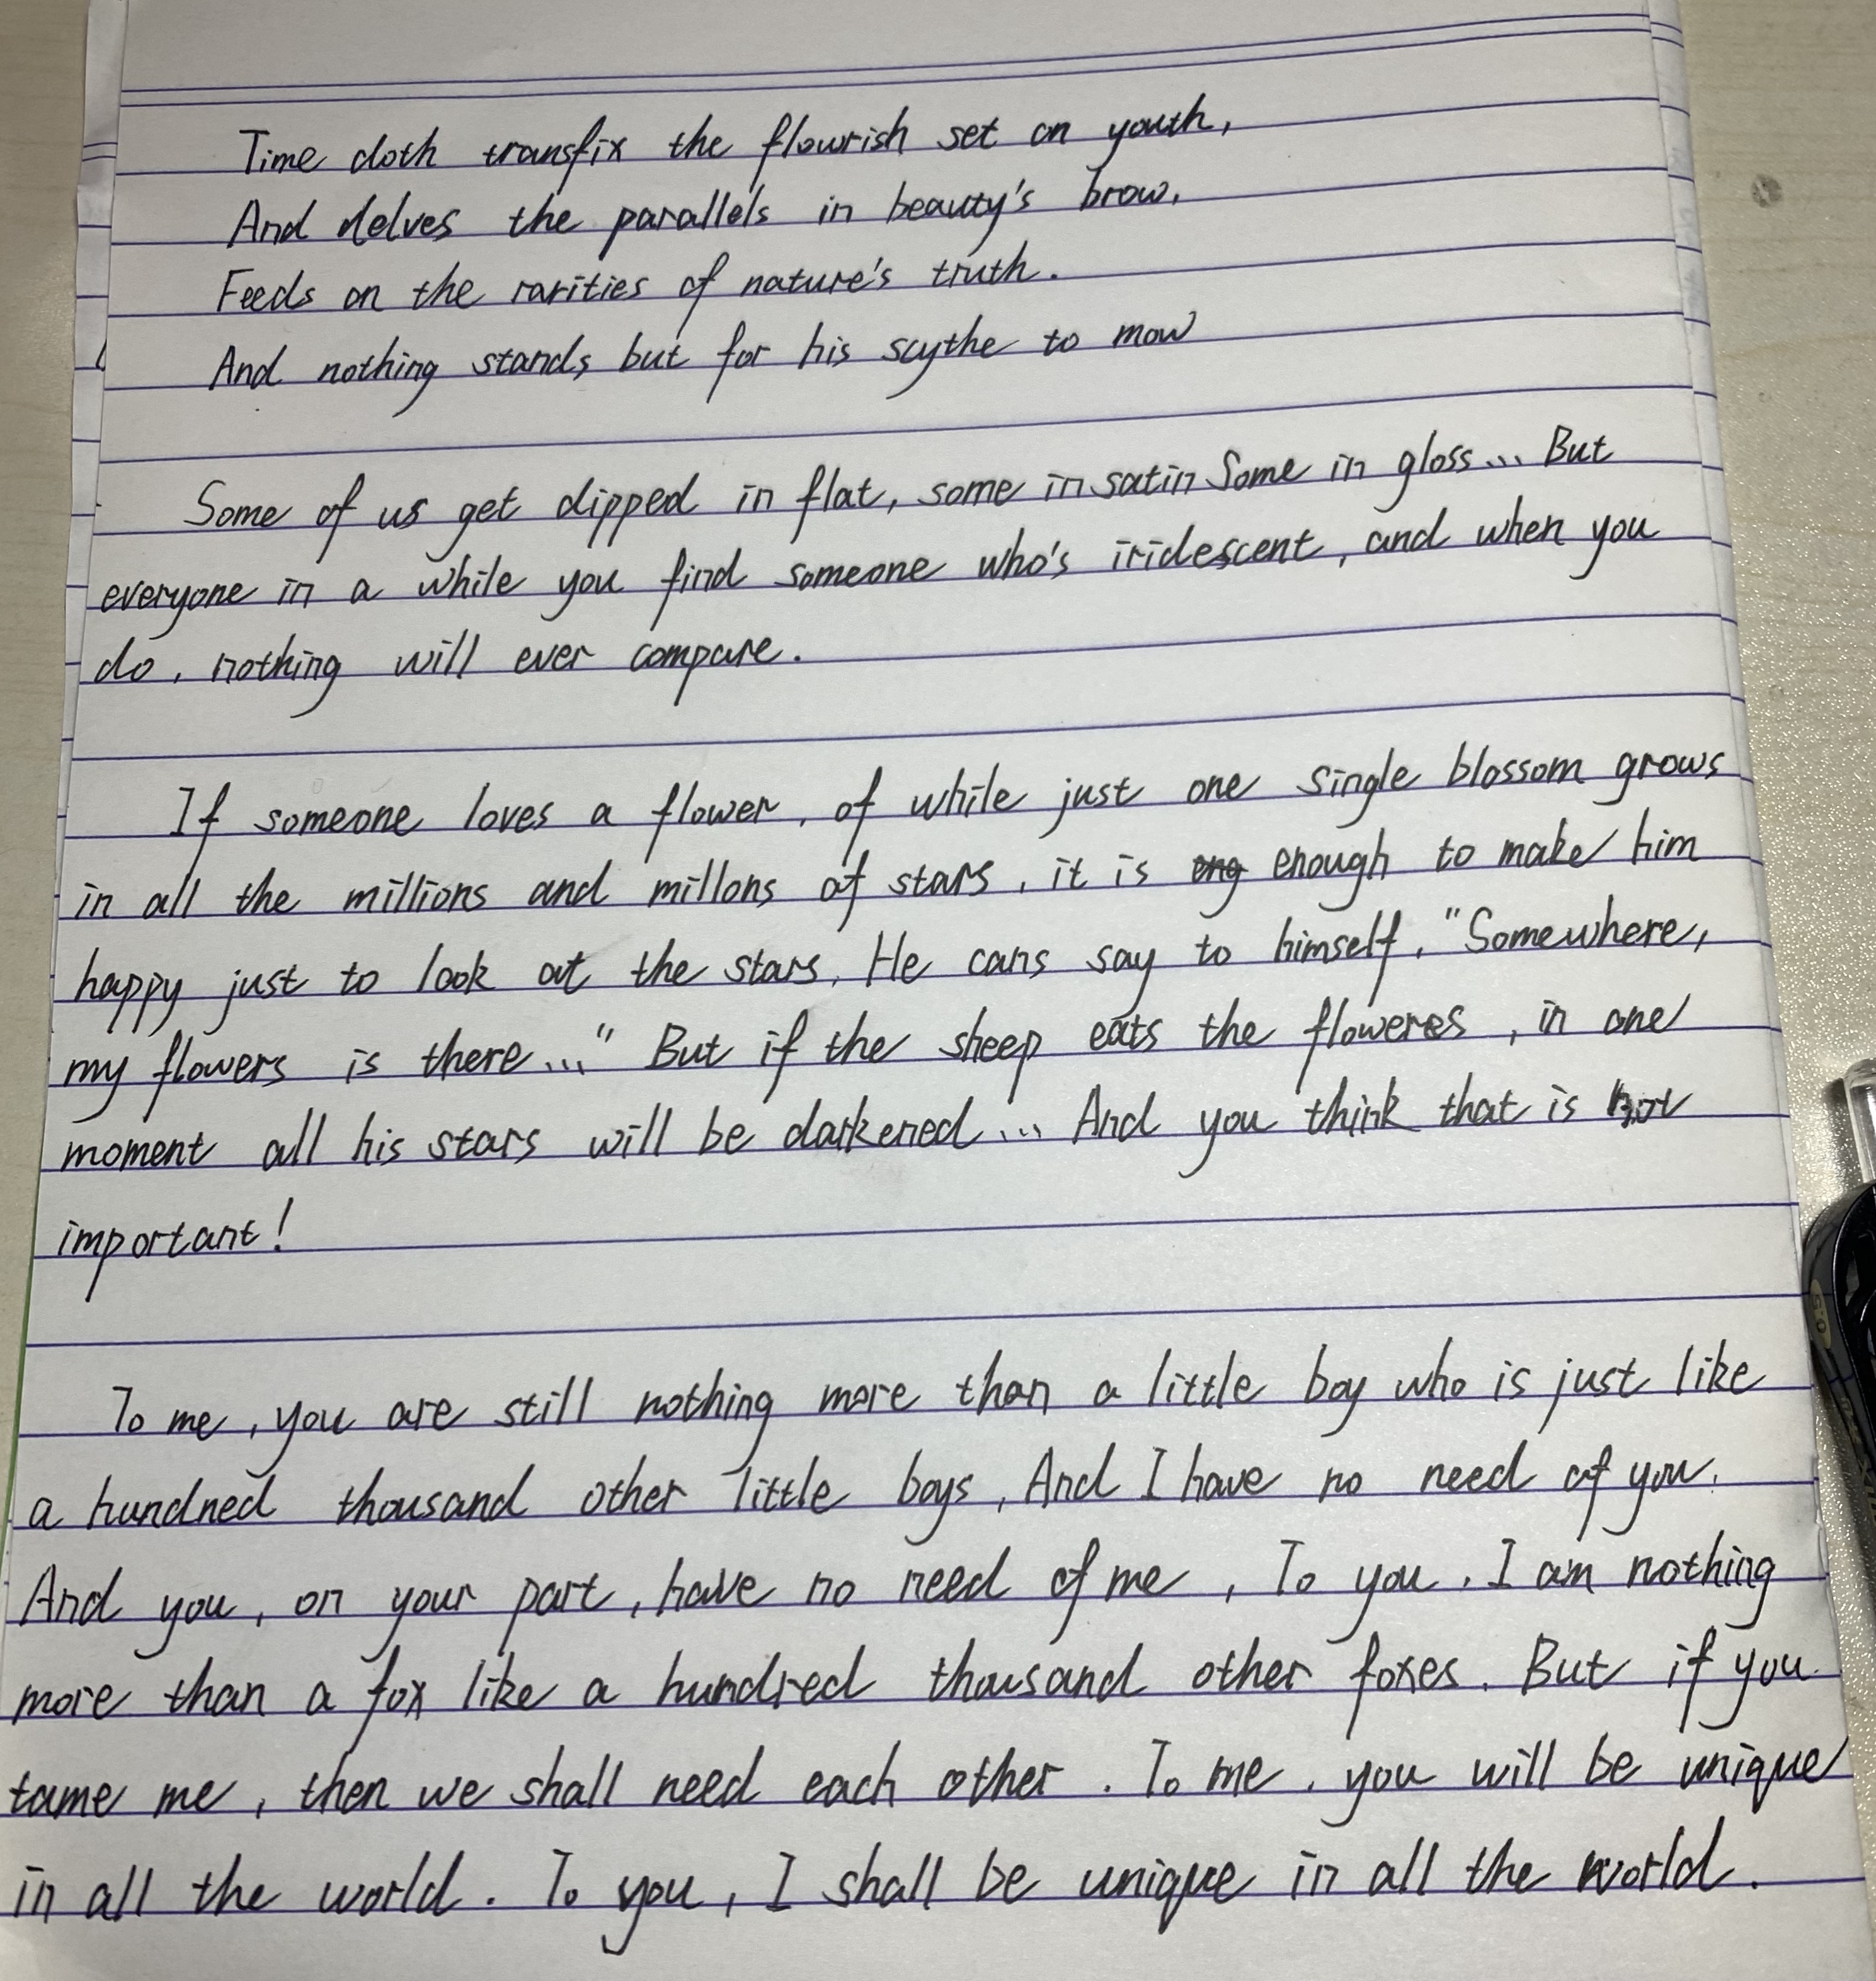 Time doth transfix the flourish set on youth,
And delves the parallels in beauty's brow,
Feeds on the rarities of nature's truth.
And nothing stands but for his scythe to mow
Some of us get dipped in flat, some in satin Some in gloss... But
everyone in a while you find someone who's iridescent, and when you
do, nothing will ever compare.
If someone loves a flower, of while just one single blossom grows
in all the millions and millons of stars, it is enough to make him
happy just to look at the stars. He cans say to himself, "Somewhere,
my flowers is there..." But if the sheep eats the floweres, in one
moment all his stars will be darkened... And you think that is not
important!
To me, you are still nothing more than a little boy who is just like
a hundned thousand other little boys, And I have no need of you.
And you, on your part, have no need of me, To you, I am nothing
more than a fox like a hundred thousand other foxes. But if you
tame me, then we shall need each other. To me, you will be unique
in all the world. To you, I shall be unique in all the world.